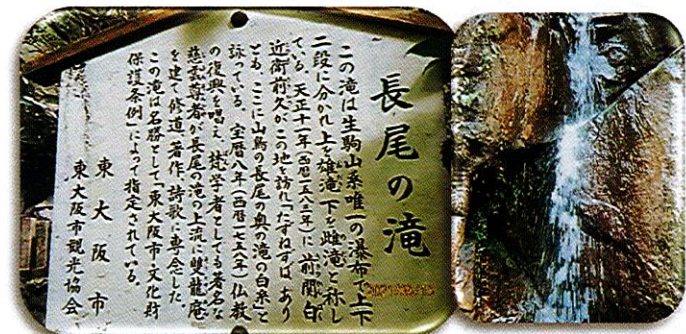 長尾の滝
この滝は生駒山系唯一の瀑布で上下
二段に分かれ上を雄滝、下を雌滝と称し
ている。天正十一年(西暦一五八三年)に前関白
近衛前久がこの地を訪れ「たずねずば、あり
とも、ここに山鳥の長尾の奥の滝の白糸」と
詠っている。宝暦八年(西暦一七五八年)仏教
の復興を唱え、梵学者としても著名な
慈雲尊者が長尾の滝の上流に雙龍庵
を建て修道、著作、詩歌に専念した
この滝は名勝として「東大阪市文化財
保護条例」によって指定されている。
東大阪市
東大阪市観光協会